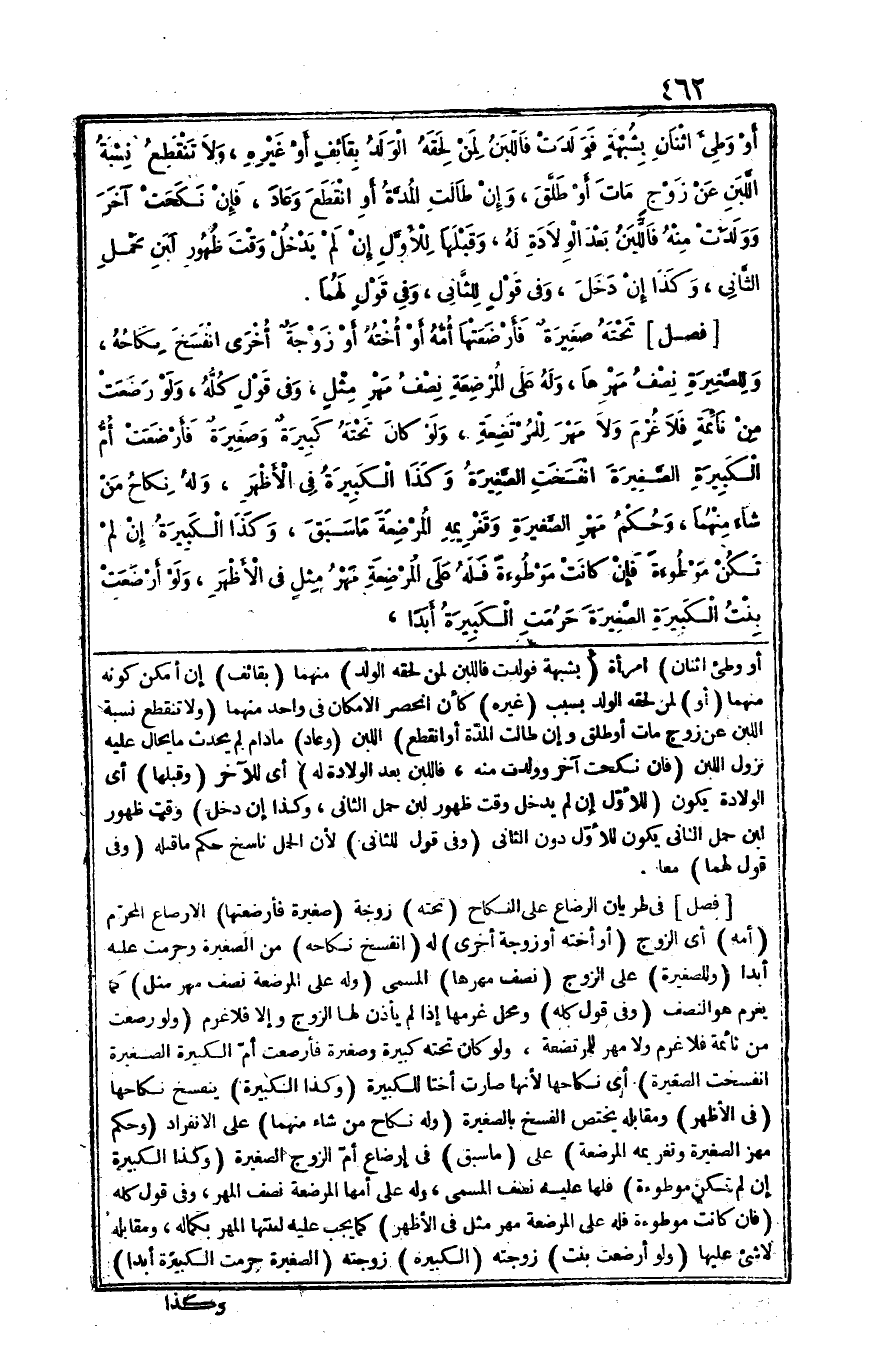 ٤٦٢
أَوْ وَطِئَ اثْنَانِ بِشُبْهَةٍ فَوَلَدَتْ فَاللَّبَنُ لِمَنْ لَحِقَهُ الْوَلَدُ بِقَائِفٍ أَوْ غَيْرِهِ ، وَلاَ تَنْقَطِعُ نِسْبَةُ
اللَّبَنِ عَنْ زَوْجٍ مَاتَ أَوْ طَلَّقَ ، وَإِنْ طَالَتِ المُدَّةُ أَوِ انْقَطَعَ وَعَادَ ، فَإِنْ نَكَحَتْ آخَرَ
وَوَلَدَتْ مِنْهُ فَاللَّبَنُ بَعْدَ الْوِلاَدَةِ لَهُ ، وَقَبْلَهَا لِلْأَوَّلِ إِنْ لَمْ يَدْخُلْ وَقْتُ ظُهُورِ لَبَنِ حَمْلِ
الثَّانِي ، وَكَذَا إِنْ دَخَلَ ، وَفِي قَوْلٍ لِلثَّانِي ، وَفِي قَوْلٍ لَهُمَا .
[فصل] تَحْتَهُ صَغِيرَةٌ فَأَرْضَعَتْهَا أُمُّهُ أَوْ أُخْتُهُ أَوْ زَوْجَةٌ أُخْرَى انْفَسَخَ نِكَاحُهُ ،
وَلِلصَّغِيرَةِ نِصْفُ مَهْرِهَا ، وَلَهُ عَلَى المُرْضِعَةِ نِصْفُ مَهْرِ مِثْلٍ ، وَفِي قَوْلٍ كُلُّهُ ، وَلَوْ رَضَعَتْ
مِنْ نَائِمَةٍ فَلاَ غُرْمَ وَلاَ مَهْرَ لِلْمُرْتَضِعَةِ ، وَلَوْ كَانَ تَحْتَهُ كَبِيرَةٌ وَصَغِيرَةٌ فَأَرْضَعَتْ أُمُّ
الْكَبِيرَةِ الصَّغِيرَةَ انْفَسَخَتِ الصَّغِيرَةُ وَكَذَا الْكَبِيرَةُ فِي الْأَظْهَرِ ، وَلَهُ نِكَاحُ مَنْ
شَاءَ مِنْهُمَا ، وَحُكْمُ مَهْرِ الصَّغِيرَةِ وَتَغْرِيمِهِ المُرْضِعَةَ مَاسَبَقَ ، وَكَذَا الْكَبِيرَةُ إِنْ لَمْ
تَكُنْ مَوْطُوءَةً فَإِنْ كَانَتْ مَوْطُوءَةً فَلَهُ عَلَى المُرْضِعَةِ مَهْرُ مِثْلٍ فِي الْأَظْهَرِ ، وَلَوْ أَرْضَعَتْ
بِنْتُ الْكَبِيرَةِ الصَّغِيرَةَ حَرُمَتِ الْكَبِيرَةُ أَبَدًا ،
أو وطئ اثنان) امرأة (بشبهة فولدت فاللبن لمن لحقه الولد) منهما (بقائف) إن أمكن كونه
منهما (أو) لمن لحقه الولد بسبب (غيره) كأن انحصر الامكان فى واحد منهما (ولا تنقطع نسبة
اللبن عن زوج مات أوطلق و إن طالت المدّة أوانقطع) اللبن (وعاد) مادام لم يحدث مايحال عليه
نزول اللبن (فان نكحت آخر وولدت منه ، فاللبن بعد الولادة له) أى للآخر (وقبلها) أى
الولادة يكون (للأوّل إن لم يدخل وقت ظهور لبن حمل الثانى ، وكذا إن دخل) وقت ظهور
لبن حمل الثانى يكون للأوّل دون الثانى (وفى قول للثانى) لأن الحمل ناسخ حكم ماقبله (وفى
قول لهما) معا .
[فصل] فى طريان الرضاع على النكاح (تحته) زوجة (صغيرة فأرضعتها) الارضاع المحرّم
(أمه) أى الزوج (أو أخته أوزوجة أخرى) له (انفسخ نكاحه) من الصغيرة وحرمت عليه
أبدا (وللصغيرة) على الزوج (نصف مهرها) المسمى (وله على المرضعة نصف مهر مثل) كما
يغرم هوالنصف (وفى قول كله) ومحل غرمها إذا لم يأذن لها الزوج و إلا فلاغرم (ولو رضعت
من نائمة فلاغرم ولا مهر للمرتضعة ، ولو كان تحته كبيرة وصغيرة فأرضعت أمّ الكبيرة الصغيرة
انفسخت الصغيرة) أى نكاحها لأنها صارت أختا للكبيرة (وكذا الكبيرة) ينفسخ نكاحها
(فى الأظهر) ومقابله يختص الفسخ بالصغيرة (وله نكاح من شاء منهما) على الانفراد (وحكم
مهر الصغيرة وتغريمه المرضعة) على (ماسبق) فى إرضاع أمّ الزوج الصغيرة (وكذا الكبيرة
إن لم تكن موطوءة) فلها عليه نصف المسمى ، وله على أمها المرضعة نصف المهر ، وفى قول كله
(فان كانت موطوءة فله على المرضعة مهر مثل فى الأظهر) كمايجب عليه لعنتها المهر بكماله ، ومقابله
لاشئ عليها (ولو أرضعت بنت) زوجته (الكبيرة) زوجته (الصغيرة حرمت الكبيرة أبدا)
وكذا